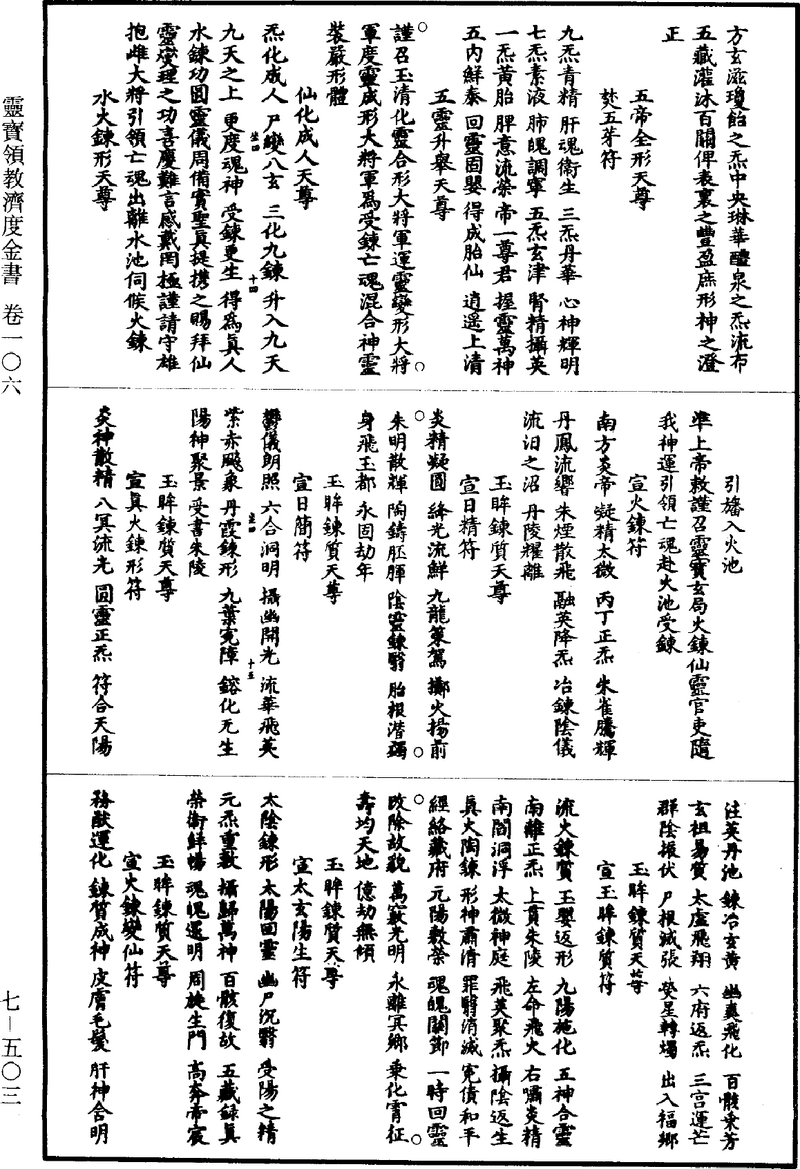 靈寶領教濟度金書 卷一〇六
七－五〇三
方玄滋瓊飴之炁中央琳華醴泉之炁流布
五藏灌沐百關俾表裏之豐盈庶形神之澄
正
五帝全形天尊
焚五芽符
九炁青精 肝魂衛生 三炁丹華 心神輝明
七炁素液 肺魄調寧 五炁玄津 腎精攝英
一炁黃胎 脾意流榮 帝一尊君 握靈萬神
五內鮮泰 回靈固嬰 得成胎仙 逍遥上清
五靈升舉天尊
○謹召玉清化靈合形大將軍運靈變形大將○
軍度靈成形大將軍爲受鍊亡魂混合神靈
裝嚴形體
仙化成人天尊
炁化成人 尸變八玄 三化九鍊 升入九天
九天之上 更度魂神 受鍊更生 得爲真人
水鍊功圓靈儀周備實聖真提携之賜拜仙
靈變理之功喜慶難言感戴罔極謹請守雄
抱雌大將引領亡魂出離水池伺候火鍊
水火鍊形天尊
引旛入火池
準上帝敕謹召靈寶玄局火鍊仙靈官吏隨
我神運引領亡魂赴火池受鍊
宣火鍊符
南方炎帝 凝精太微 丙丁正炁 朱雀騰輝
丹鳳流響 朱煙散飛 融英降炁 冶鍊陰儀
流汨之沼 丹陵耀離
玉眸鍊質天尊
宣日精符
炎精凝圓 絳光流鮮 九龍策駕 擲火揚前
○朱明散輝 陶鑄胚腪 陰靈鍊翳 胎根潛蠲○
身飛玉都 永固劫年
玉眸鍊質天尊
宣日簡符
鬱儀朗照 六合洞明 攝幽開光 流華飛英
紫赤飈象 丹霞鍊形 九葉寃障 鎔化无生
陽神聚景 受書朱陵
玉眸鍊質天尊
宣真火鍊形符
炎神散精 八冥流光 圓靈正炁 符合天陽
注英丹池 鍊冶玄黃 幽爽飛化 百骸乘芳
玄祖易質 太虛飛翔 六府返炁 三宮運芒
群陰振伏 尸根滅張 熒星轉燭 出入福鄉
玉眸鍊質天尊
宣玉眸鍊質符
流火鍊質 玉嬰返形 九陽施化 五神合靈
南離正炁 上貫朱陵 左命飛火 右嘯炎精
南閻洞浮 太微神庭 飛英聚炁 攝陰返生
真火陶鍊 形神肅清 罪翳消滅 寃債和平
經絡藏府 元陽敷榮 魂魄關節 一時回靈
○改除故貌 萬竅光明 永離冥鄉 乘化霄征○
壽均天地 億劫無傾
玉眸鍊質天尊
宣太玄陽生符
太陰鍊形 太陽回靈 幽尸沉翳 受陽之精
元炁重敷 攝歸萬神 百骸復故 五藏録真
榮衛鮮暢 魂魄還明 周旋生門 高奔帝宸
玉眸鍊質天尊
宣火鍊變仙符
務猷運化 鍊質成神 皮膚毛髮 肝神含明